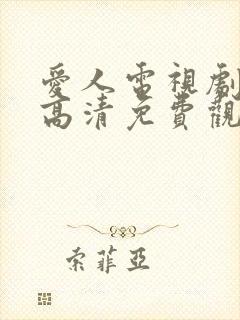 愛人電視劇
高清免費觀
索菲亞